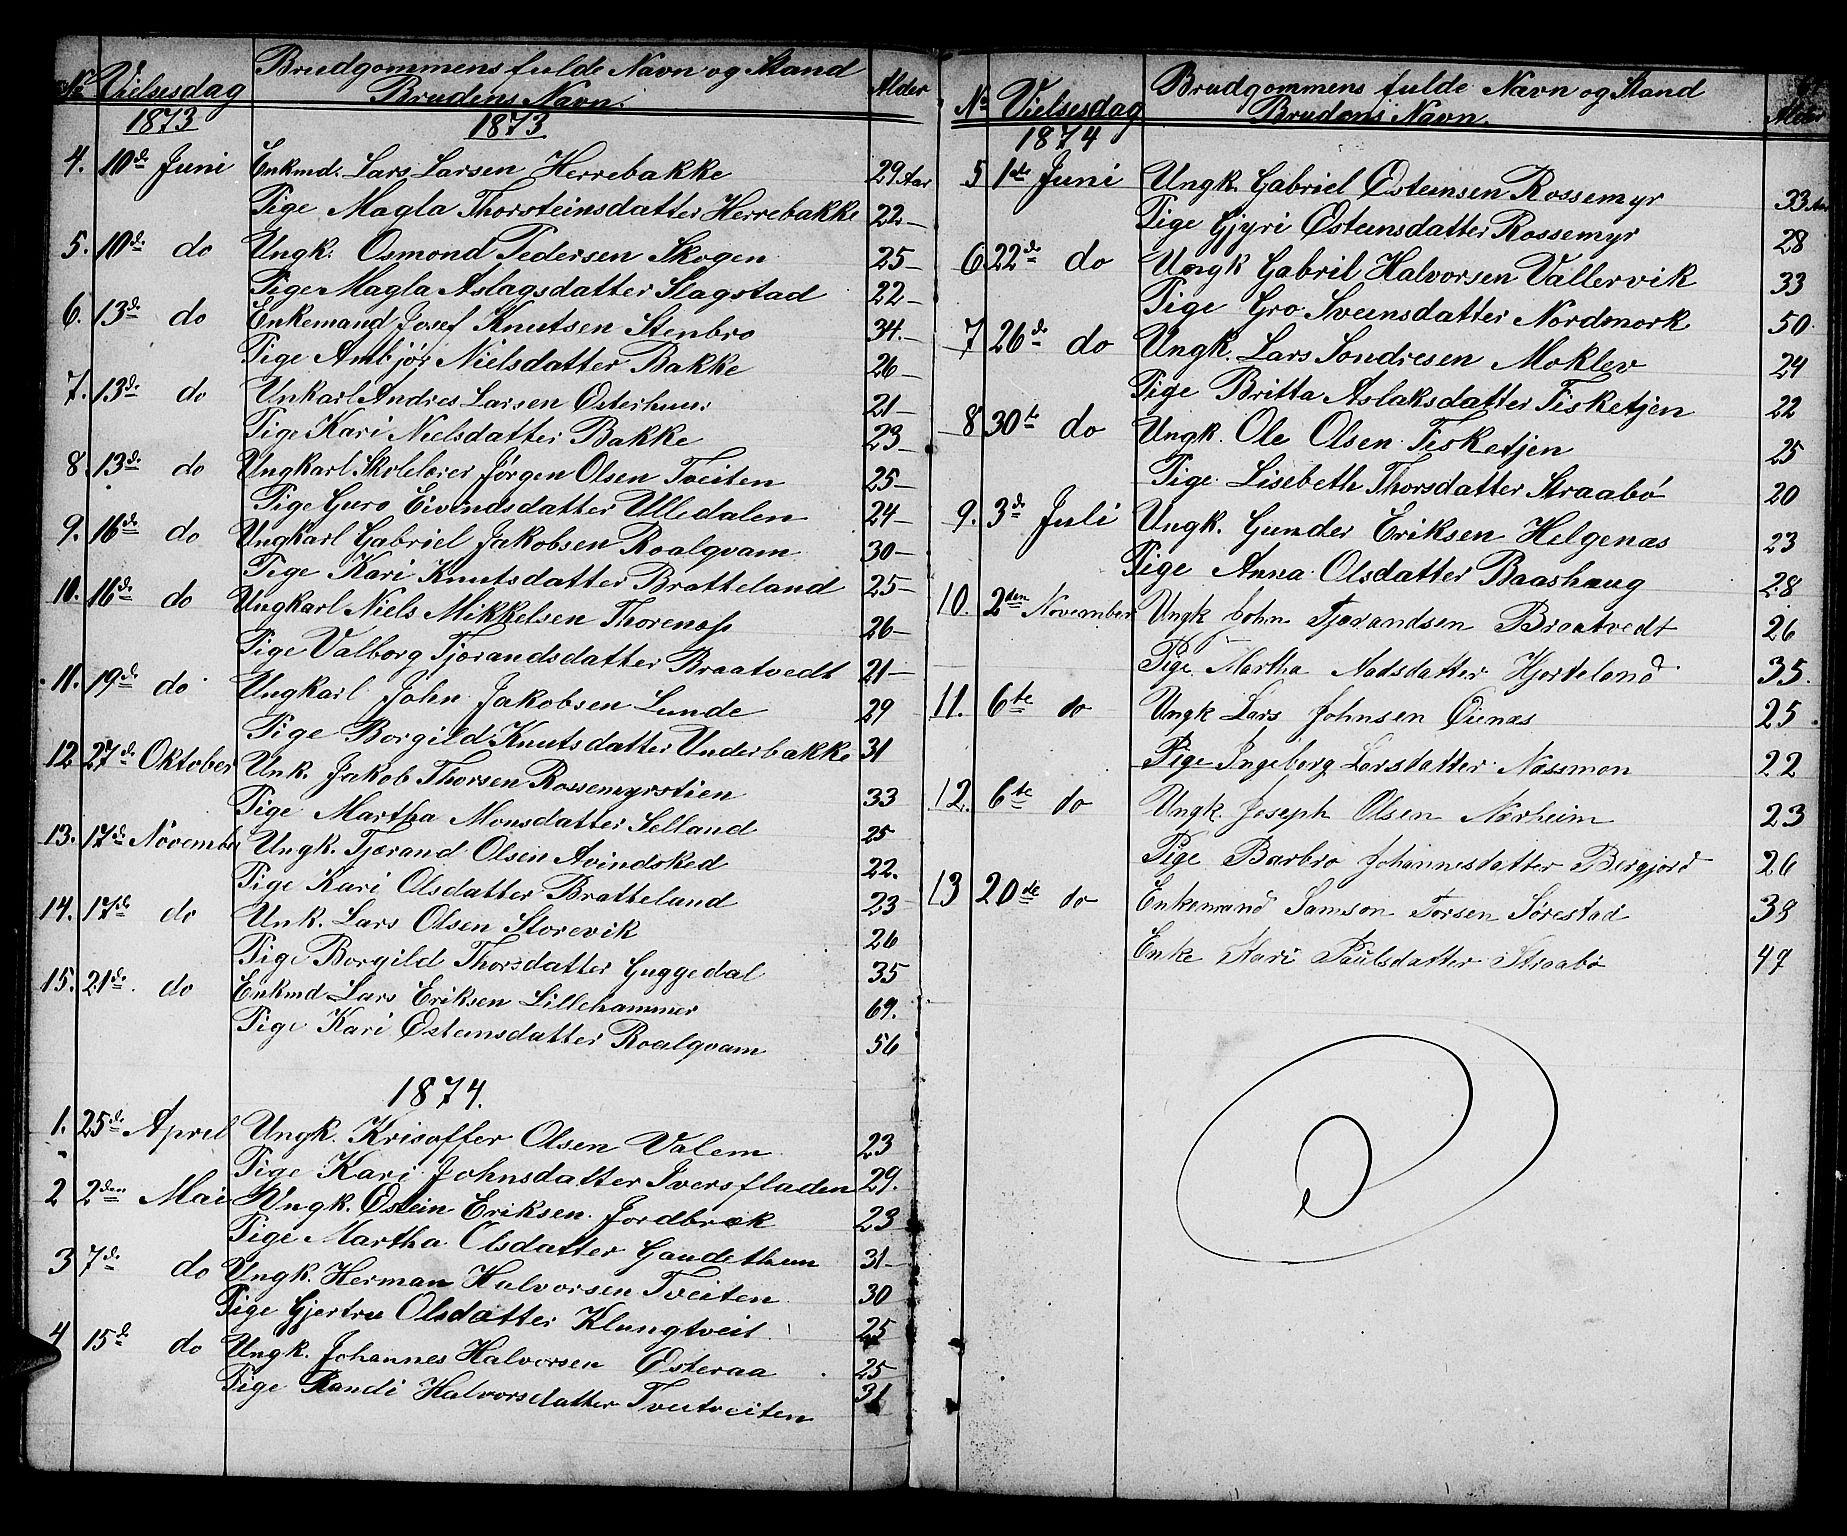 No Vielsesdag Brudgommens fulde Navn og Stand Alder
Brudens Navn.
1873 1873
4. 10de Juni Enkmd. Lars Larsen Herrebakke 29 Aar
Pige Magla Thorsteinsdatter Herrebakke 22-
5. 10de do Ungk. Osmond Pedersen Skogen 25-
Pige Magla Aslagsdatter Slagstad 22-
6. 13de do Enkemand Josef Knutsen Stenbro 34.-
Pige Ambjør Nielsdatter Bakke 26-
7. 13de do Unkarl Andres Larsen Østerhuus 21-
Pige Kari Nielsdatter Bakke 23-
8. 13de do Ungkarl Skolelærer Jørgen Olsen Tveiten 25-
Pige Guro Eivindsdatter Ulledalen 24-
9. 16de do Ungkarl Gabriel Jakobsen Roalqvam 30-
Pige Kari Knutsdatter Bratteland 25-
10. 16de do Ungkarl Niels Mikkelsen Thorenæs 26-
Pige Valborg Tjorandsdatter Braatvedt 21-
11. 19de do Ungkarl John Jakobsen Lunde 29
Pige Borgild Knutsdatter Underbakke 31
12 27de Oktober Unk. Jakob Thorsen Rossemyrstien 33
Pige Martha Monsdatter Selland 25
13. 17de November Ungk. Tjærand Olsen Avindsked 22.
Pige Kari Olsdatter Bratteland 23
14. 17de do Unk. Lars Olsen Storevik 26
Pige Borgild Thorsdatter Guggedal 35
15. 21de do Enkmd Lars Eriksen Lillehammer 69.
Pige Kari Østensdatter Roalqvam 56
1874.
1. 25de April Ungk. Krisoffer Olsen Valem 23
Pige Kari Johnsdatter Iversfladen 29.
2 2den Mai Ungk. Østein Eriksen Jordbræk 23
Pige Martha Olsdatter Gaudethun 31-
3 7de do Ungk. Herman Halvorsen Tveiten 30
Pige Gjertru Olsdatter Klungtveit 25
4 15de do Ungk. Johannes Halvorsen Østeraa 25
Pige Randi Halvorsdatter Tveitveiten 31
No Vielsesdag Brudgommens fulde Navn og Stand
Brudens Navn. Alder
1874
5 1de Juni Ungk. Gabriel Østeinsen Rossemyr 33 Aar
Pige Gjyri Østeinsdatter Rossemyr 28
6 22de do Ungk Gabril Halvorsen Vallervik 33
Pige Gro Sveinsdatter Nordmork 50
7 26de do Ungk. Lars Sondresen Moklev 24
Pige Britta Aslaksdatter Fisketjen 22
8 30te do Ungk. Ole Olsen Fisketjen 25
Pige Lisebeth Thorsdatter Straabø 20
9. 3de Juli Ungk. Gunder Eriksen Helgenæs 23
Pige Anna Olsdatter Baashaug 28
10. 2den November Ungk John Tjærandsen Braatvedt 26
Pige Martha Madsdatter Hjorteland 35.
11. 6te do Ungk Lars Johnsen Øienæs 25
Pige Ingeborg Larsdatter Næssmon 22
12. 6te do Ungk. Joseph Olsen Nærheim 23
Pige Barbro Johannesdatter Bergjord 26
13 20de do Enkemand Samson Torsen Sørestad 38
Enke Kari Paulsdatter Straabø 47